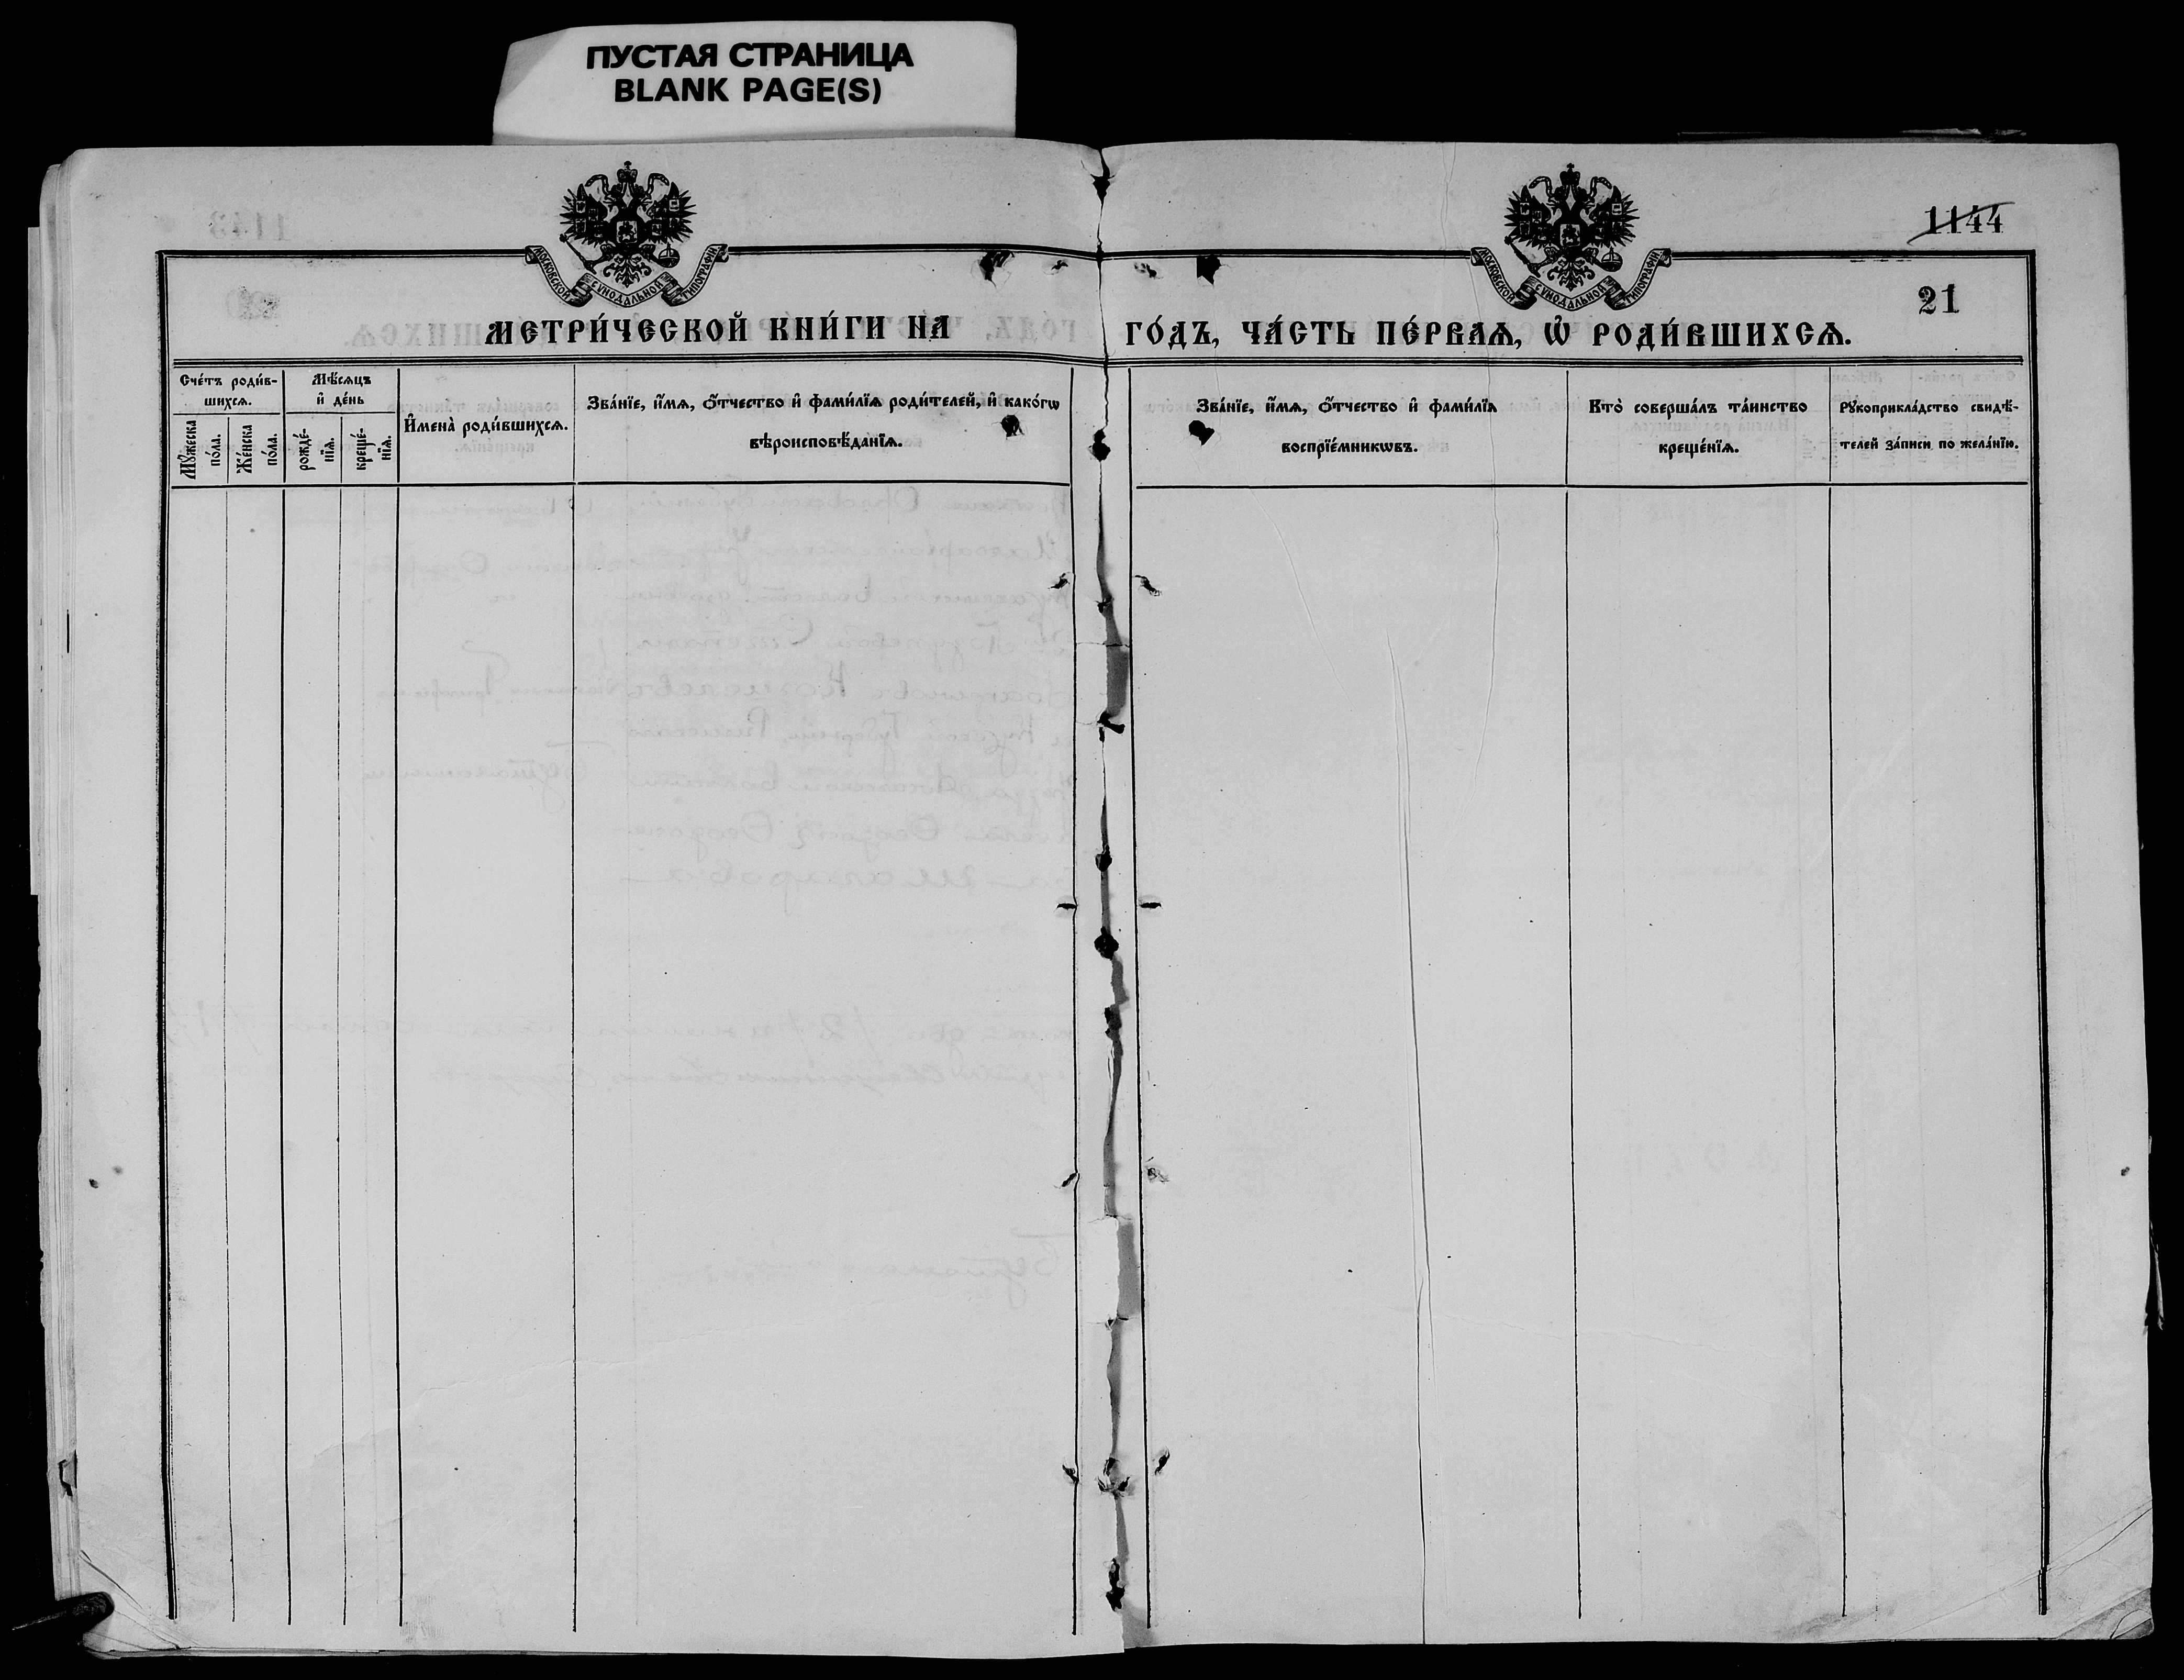 ПУСТАЯ СТРАНИЦА
BLANK PAGE(S)
1144
МОСКОВСКОЙ СУНОДАЛЬНОЙ ТИПОГРАФІИ
МОСКОВСКОЙ СУНОДАЛЬНОЙ ТИПОГРАФІИ
21
МЕТРИ́ЧЕСКОЙ КНИ́ГИ НА
ГО́ДЪ, ЧА́СТЬ ПЕ́РВАѦ, Ѡ҆ РОДИ́ВШИХСѦ.
Сче́тъ роди́в-
шихсѧ.
Мꙋ́жеска
по́ла.
Же́нска
по́ла.
Мѣ́сѧцъ
и҆ де́нь
рожде́-
нїѧ.
креще́-
нїѧ.
И҆мена̀ роди́вшихсѧ.
Зва́нїе, и҆́мѧ, ѻ҆́тчество и҆ фами́лїѧ роди́телей, и҆ како́гѡ
вѣроисповѣ́данїѧ.
Зва́нїе, и҆́мѧ, ѻ҆́тчество и҆ фами́лїѧ
воспрїе́мникѡвъ.
Кто̀ соверша́лъ та́инство
креще́нїѧ.
Рꙋкоприкла́дство свидѣ́-
телей за́писи по жела́нїю.